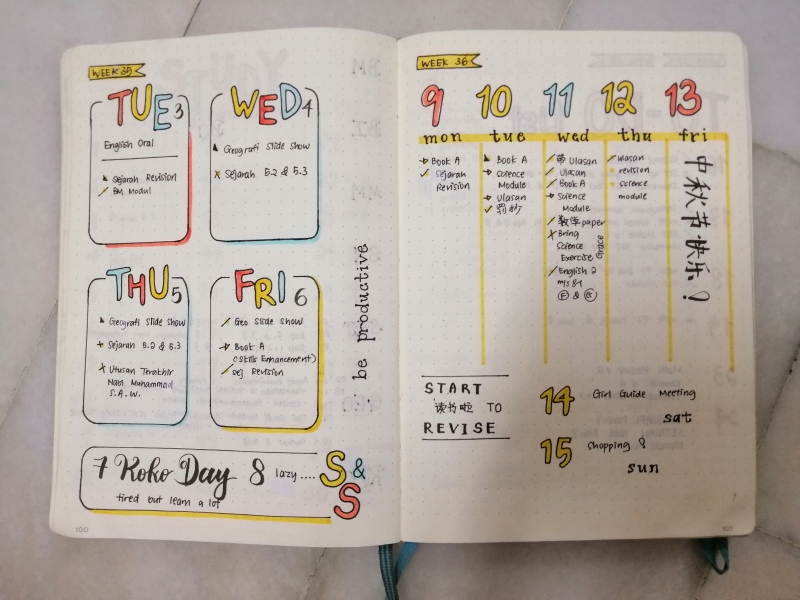 WEEK 35
TUE 3
English Oral
Sejarah Revision
BM Modul
WED 4
Geografi Slide Show
Sejarah 5.2 & 5.3
THU 5
Geografi Slide Show
Sejarah 5.2 & 5.3
Utusan Terakhir
Nabi Muhammad
S.A.W.
FRI 6
Geo Slide Show
Book A
(Skills Enhancement)
Sej Revision
be productive
7 Koko Day 8 lazy.... S & S
tired but learn a lot
100
WEEK 36
9 10 11 12 13
mon tue wed thu fri
Book A
Sejarah
Revision
Book A
Science
Module
Ulasan
Ulasan
Ulasan
Book A
Science
Module
数学 paper
Bring
Science
Exercise
Grace
English 2
ulasan
revision
science
module
中秋节快乐!
START
读书啦 TO
REVISE
14 Girl Guide Meeting
sat
15 Shopping!
sun
101